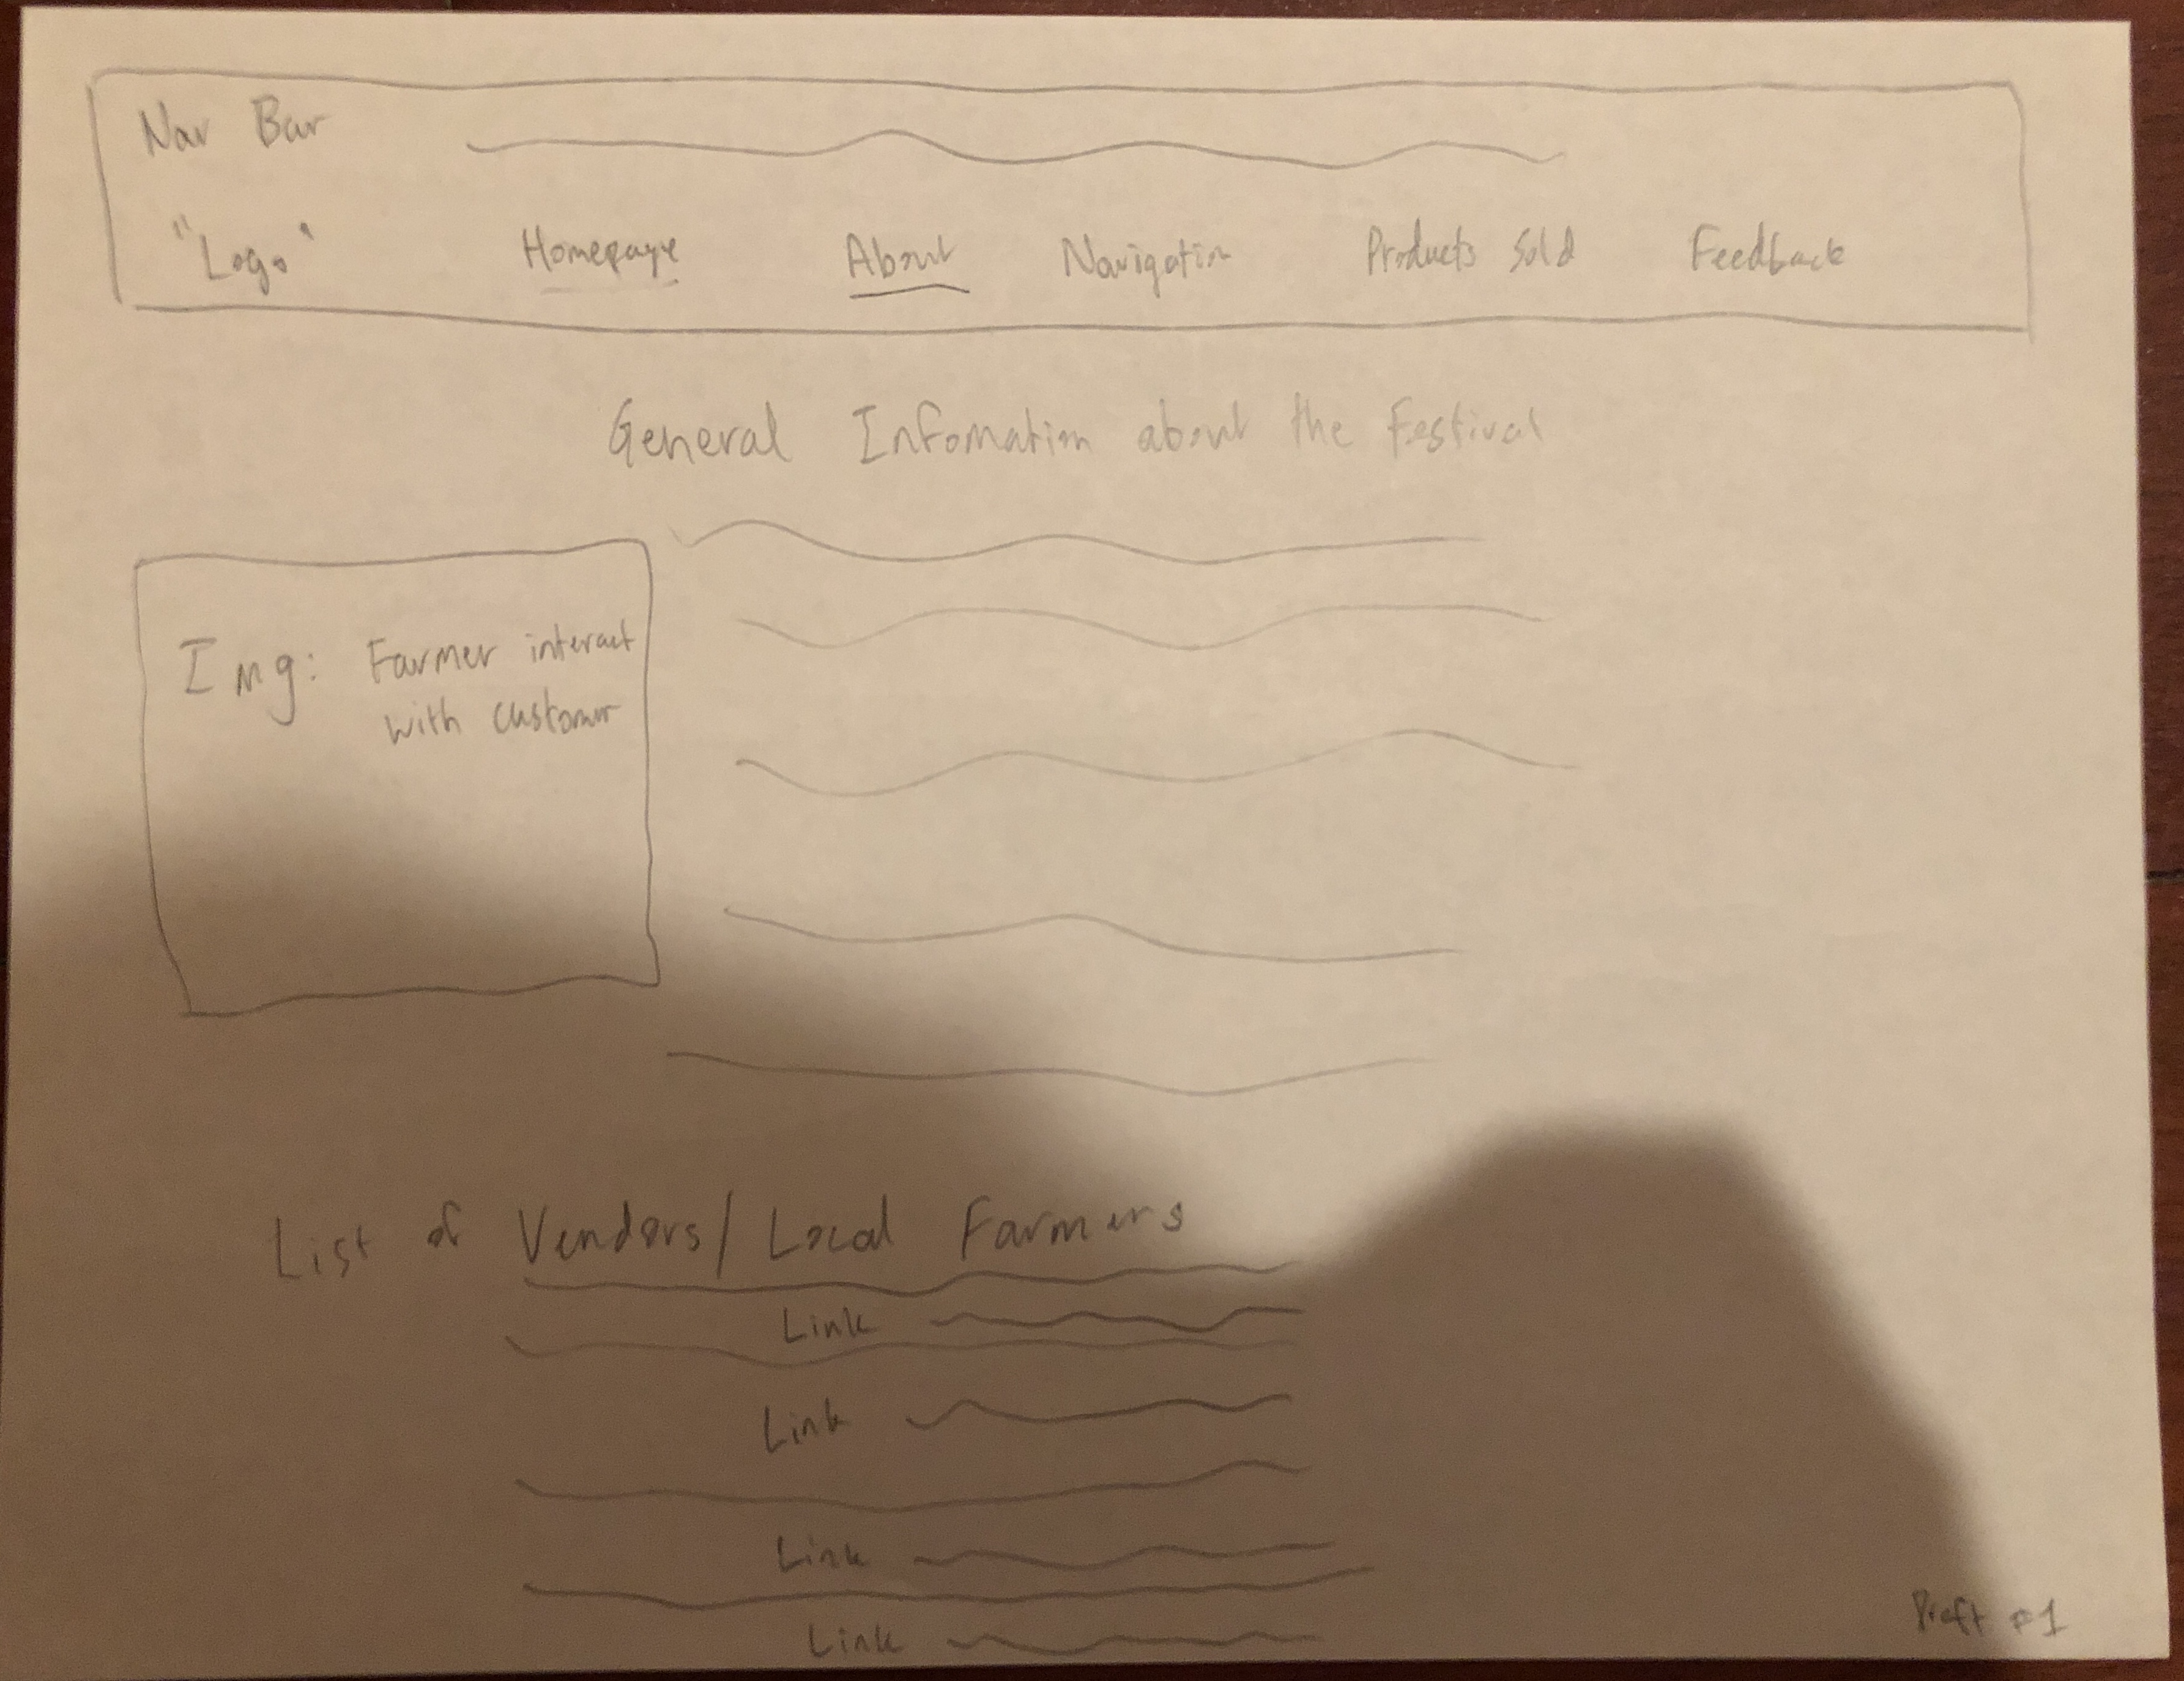 Nav Bar
"Logo" Homepage About Navigation Products Sold Feedback
General Infomation about the Festival
Img: Farmer interact
with customer
List of Vendors/Local Farmers
Link
Link
Link
Link
Draft #1